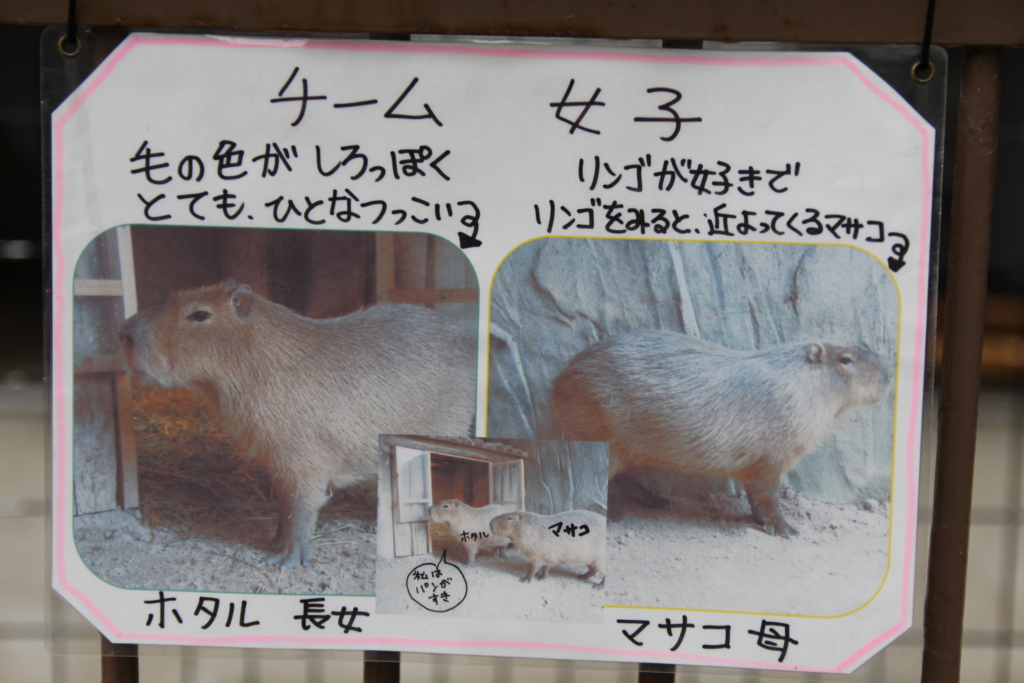 チーム 女子
毛の色が しろっぽく
とても、ひとなつっこい
リンゴが好きで
リンゴをみると、近よってくるマサコ
ホタル
マサコ
私は
パンが
すき
ホタル 長女
マサコ 母